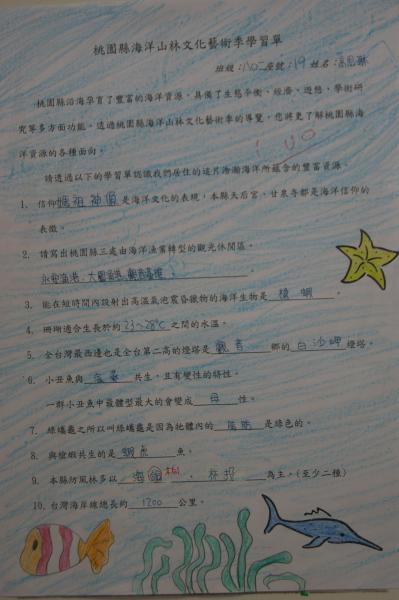 桃園縣海洋山林文化藝術季學習單
班級：八〇二座號：19 姓名：
桃園縣沿海孕育了豐富的海洋資源，具備了生態平衡、經濟、遊憩、學術研
究等多方面功能。透過桃園縣海洋山林文化藝術季的導覽，您將更了解桃園縣海
洋資源的各種面向。
請透過以下的學習單認識我們居住的這片浩瀚海洋所蘊含的豐富資源。
1、信仰媽祖神像是海洋文化的表現，本縣天后宮、甘泉寺都是海洋信仰的
表徵。
2、請寫出桃園縣三處由海洋漁業轉型的觀光休閒區。
永安漁港、大園
3、能在短時間內放射出高溫氣泡震昏獵物的海洋生物是 槍蝦 。
4、珊瑚適合生長於約 23~28°C 之間的水溫。
5、全台灣最西邊也是全台第二高的燈塔是 觀音 鄉的 白沙岬 燈塔。
6、小丑魚與 海葵 共生，且有變性的特性。
一群小丑魚中最體型最大的會變成 母 性。
7、綠蠵龜之所以叫綠蠵龜是因為牠體內的 脂肪 是綠色的。
8、與槍蝦共生的是 鰕虎 魚。
9、本縣防風林多以 木麻 、 林投 為主。(至少二種)
10、台灣海岸線總長約 1200 公里。